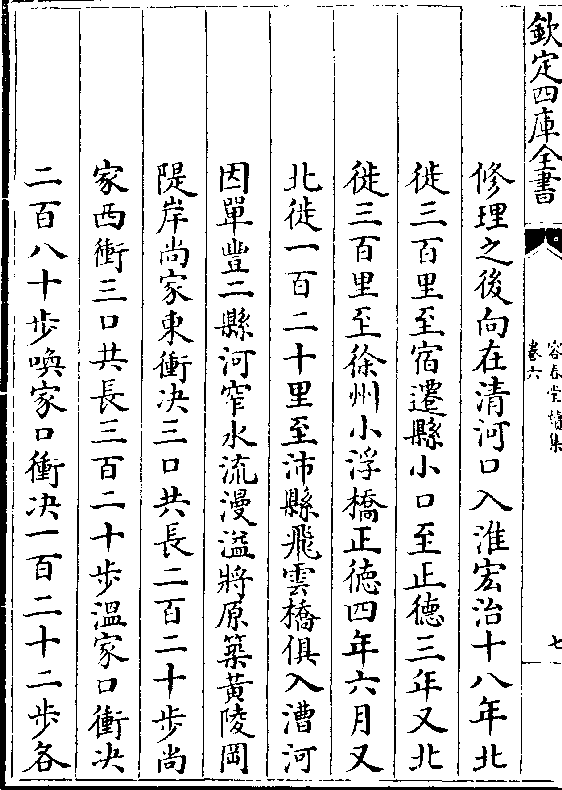 欽定四庫全書
容春堂續集
卷六
七
修理之後向在清河口入淮宏治十八年北
徙三百里至宿遷縣小口至正德三年又北
徙三百里至徐州小浮橋正徳四年六月又
北徙一百二十里至沛縣飛雲橋俱入漕河
因單豐二縣河窄水流漫溢將原築黃陵岡
隄岸尚家東衝决三口共長二百二十步尚
家西衝三口共長三百二十步溫家口衝决
二百八十步喚家口衝决一百二十二步各